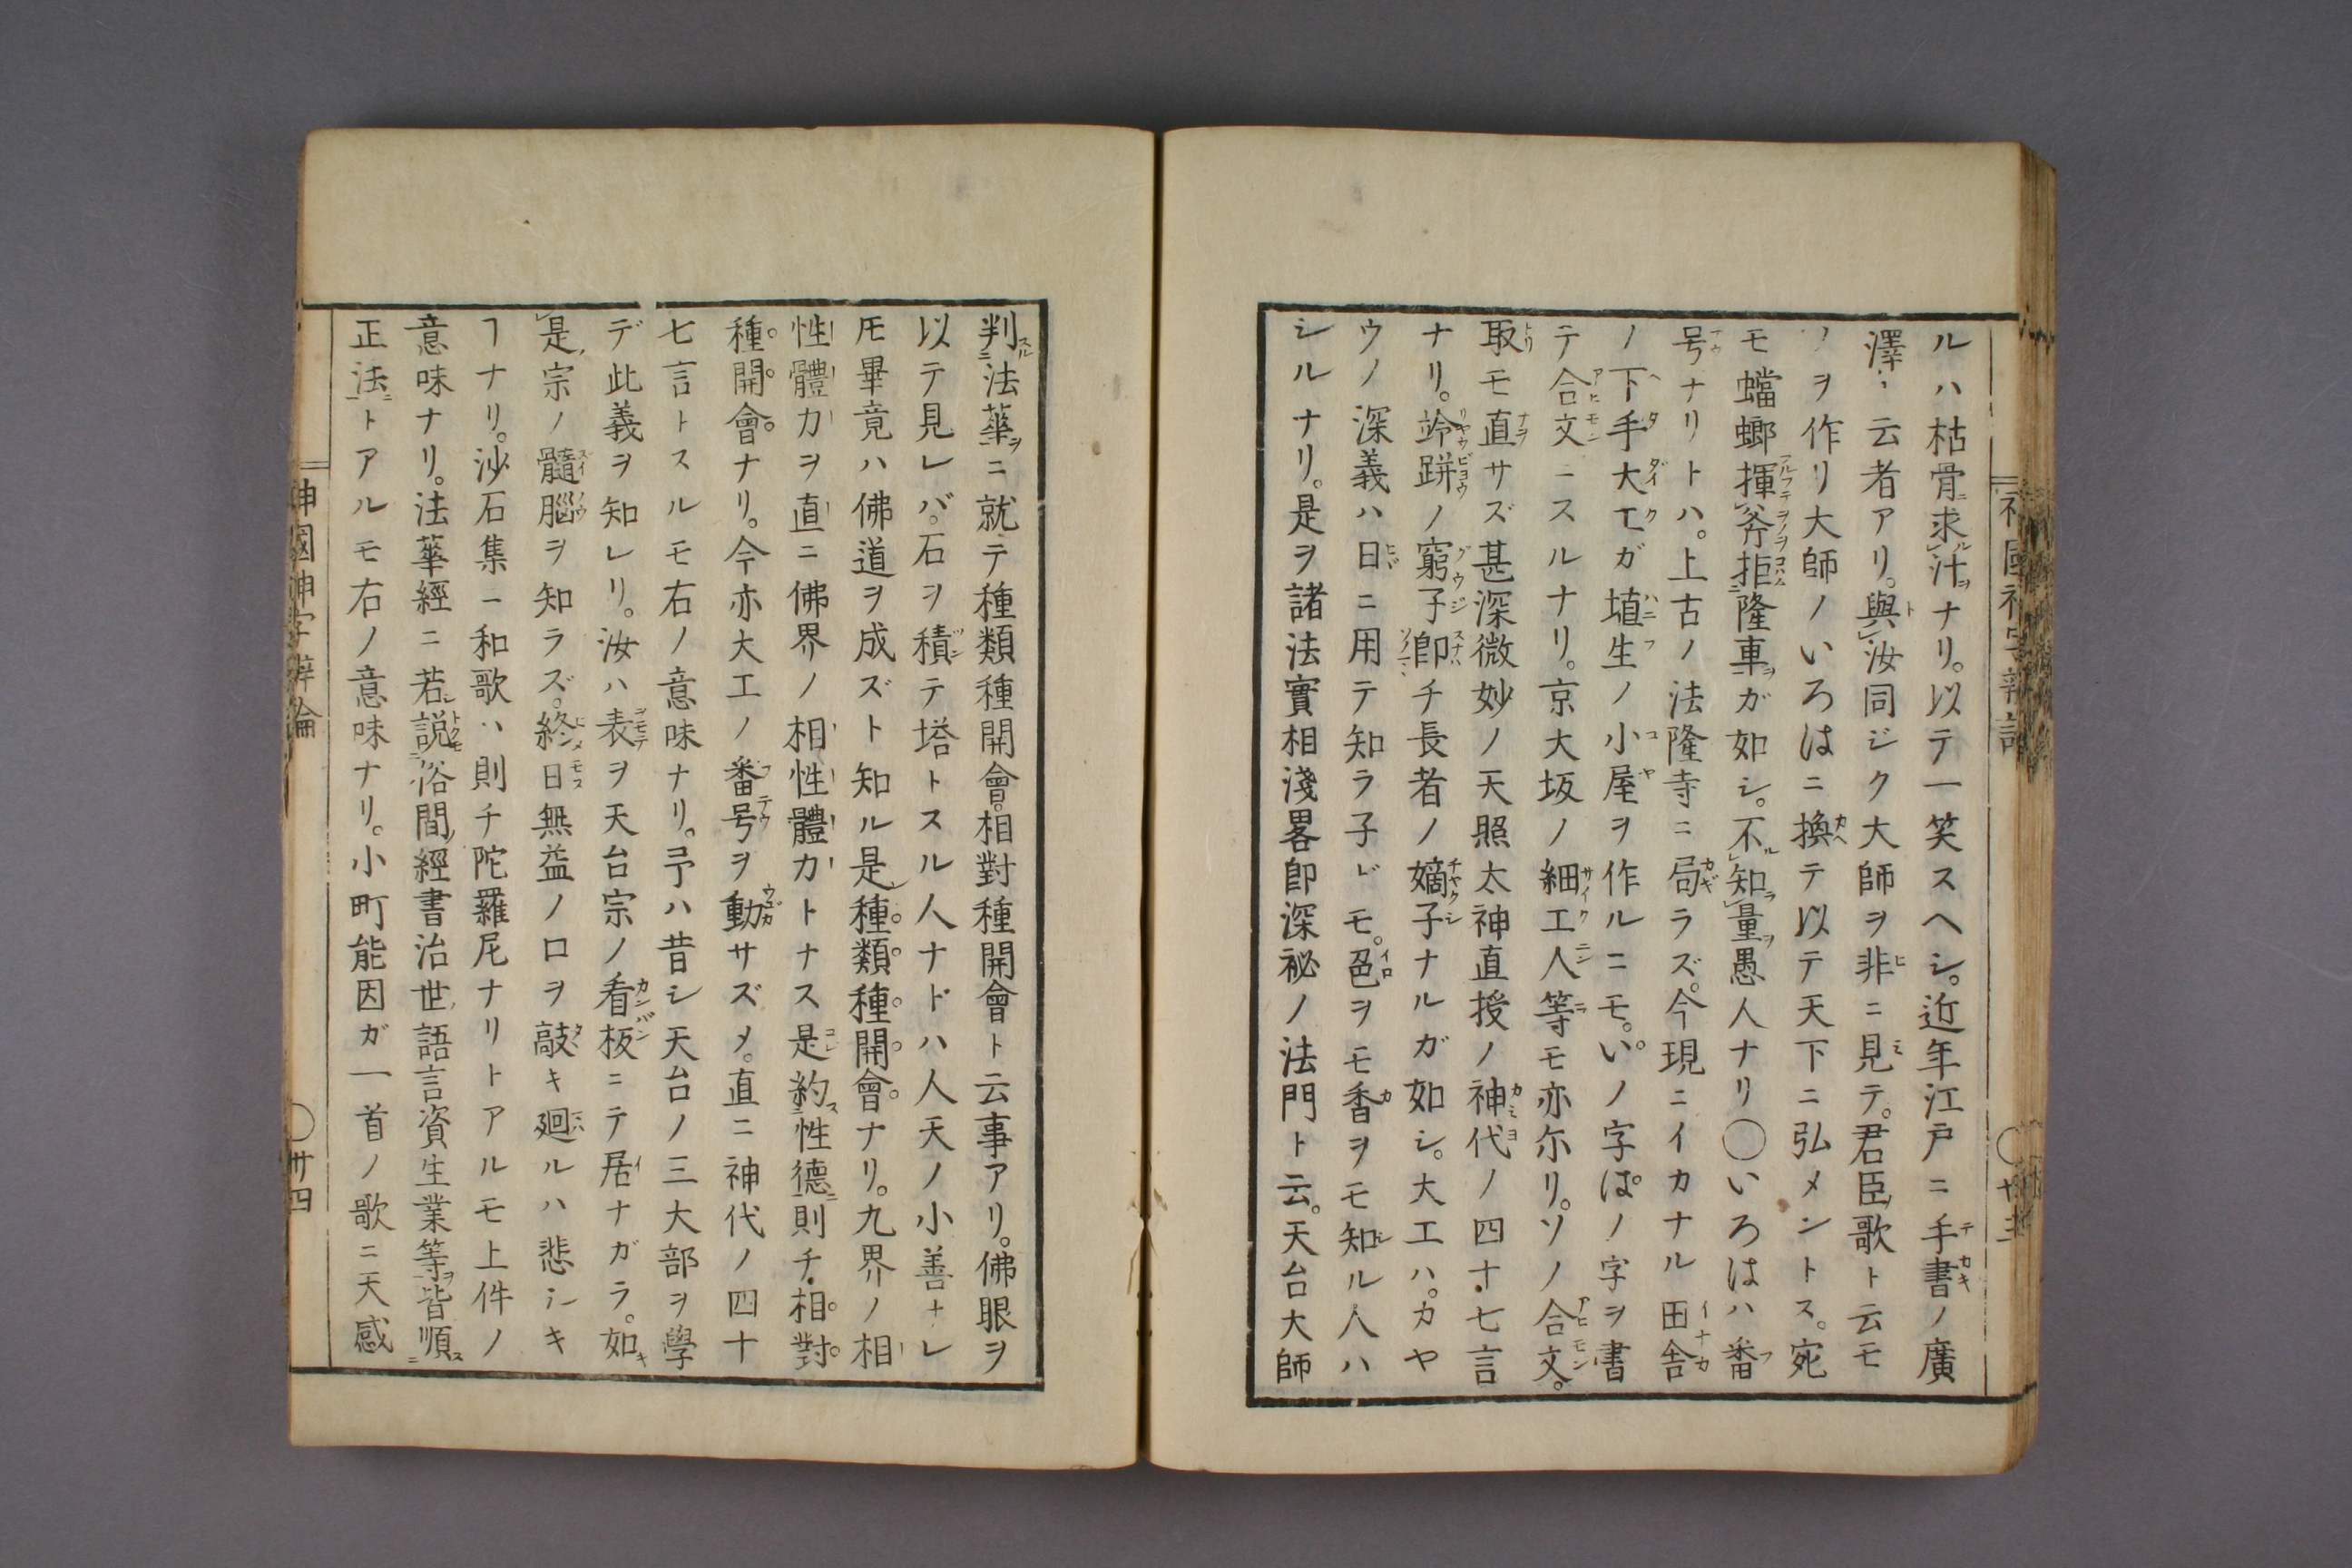 ルハ枯骨ニ求ルレ汁ヲナリ。以テ一笑スヘシ。近年江戸ニ手書ノ廣
澤ミ云者アリ。與レ汝同ジク大師ヲ非ニ見テ。君臣歌ト云モ
ノヲ作リ大師ノいろはニ換テ以テ天下ニ弘メントス。宛
モ蟷螂揮レ斧拒ニ隆車ヲガ如シ。不レ知レ量ヲ愚人ナリ◯いろはハ番
号ナリトハ。上古ノ法隆寺ニ局ラズ。今現ニイカナル田舎
ノ下手大工ガ埴生ノ小屋ヲ作ルニモ。いノ字ぱノ字ヲ書
テ合文ニスルナリ。京大坂ノ細工人等モ亦尓リ。ソノ合文。
取モ直サズ甚深微妙ノ天照太神直授ノ神代ノ四十七言
ナリ。竛跰ノ窮子即チ長者ノ嫡子ナルガ如シ。大工ハ。カヤ
ウノ深義ハ日ニ用テ知ラ子ドモ。色ヲモ香ヲモ知ル人ハ
シルナリ。是ヲ諸法實相淺畧即深祕ノ法門ト云。天台大師
判スルニ法華ヲニ就テ種類種開會。相對種開會ト云事アリ。佛眼ヲ
以テ見レバ。石ヲ積テ塔トスル人ナドハ人天ノ小善ナレ
𪜈畢竟ハ佛道ヲ成ズト知ル是レ種類種開會ナリ。九界ノ相
性體力ヲ直ニ佛界ノ相性體力トナス是約ス性德ニ則チ相對
種開會ナリ。今亦大工ノ番号ヲ動サズメ。直ニ神代ノ四十
七言トスルモ右ノ意味ナリ。予ハ昔シ天台ノ三大部ヲ學
デ此義ヲ知レリ。汝ハ表ヲ天台宗ノ看板ニテ居ナガラ。如キ
レ是ノ宗ノ髓腦ヲ知ラズ。終日無益ノ口ヲ敲キ廻ルハ悲シキ
ヿナリ。沙石集ニ和歌ハ則チ陀羅尼ナリトアルモ上件ノ
意味ナリ。法華經ニ若シ説トクモ俗間ノ經書治世ノ語言資生業等ヲ皆順ス
正法ニトアルモ右ノ意味ナリ。小町能因ガ一首ノ歌ニ天感
神國神字辨論
◯廿四